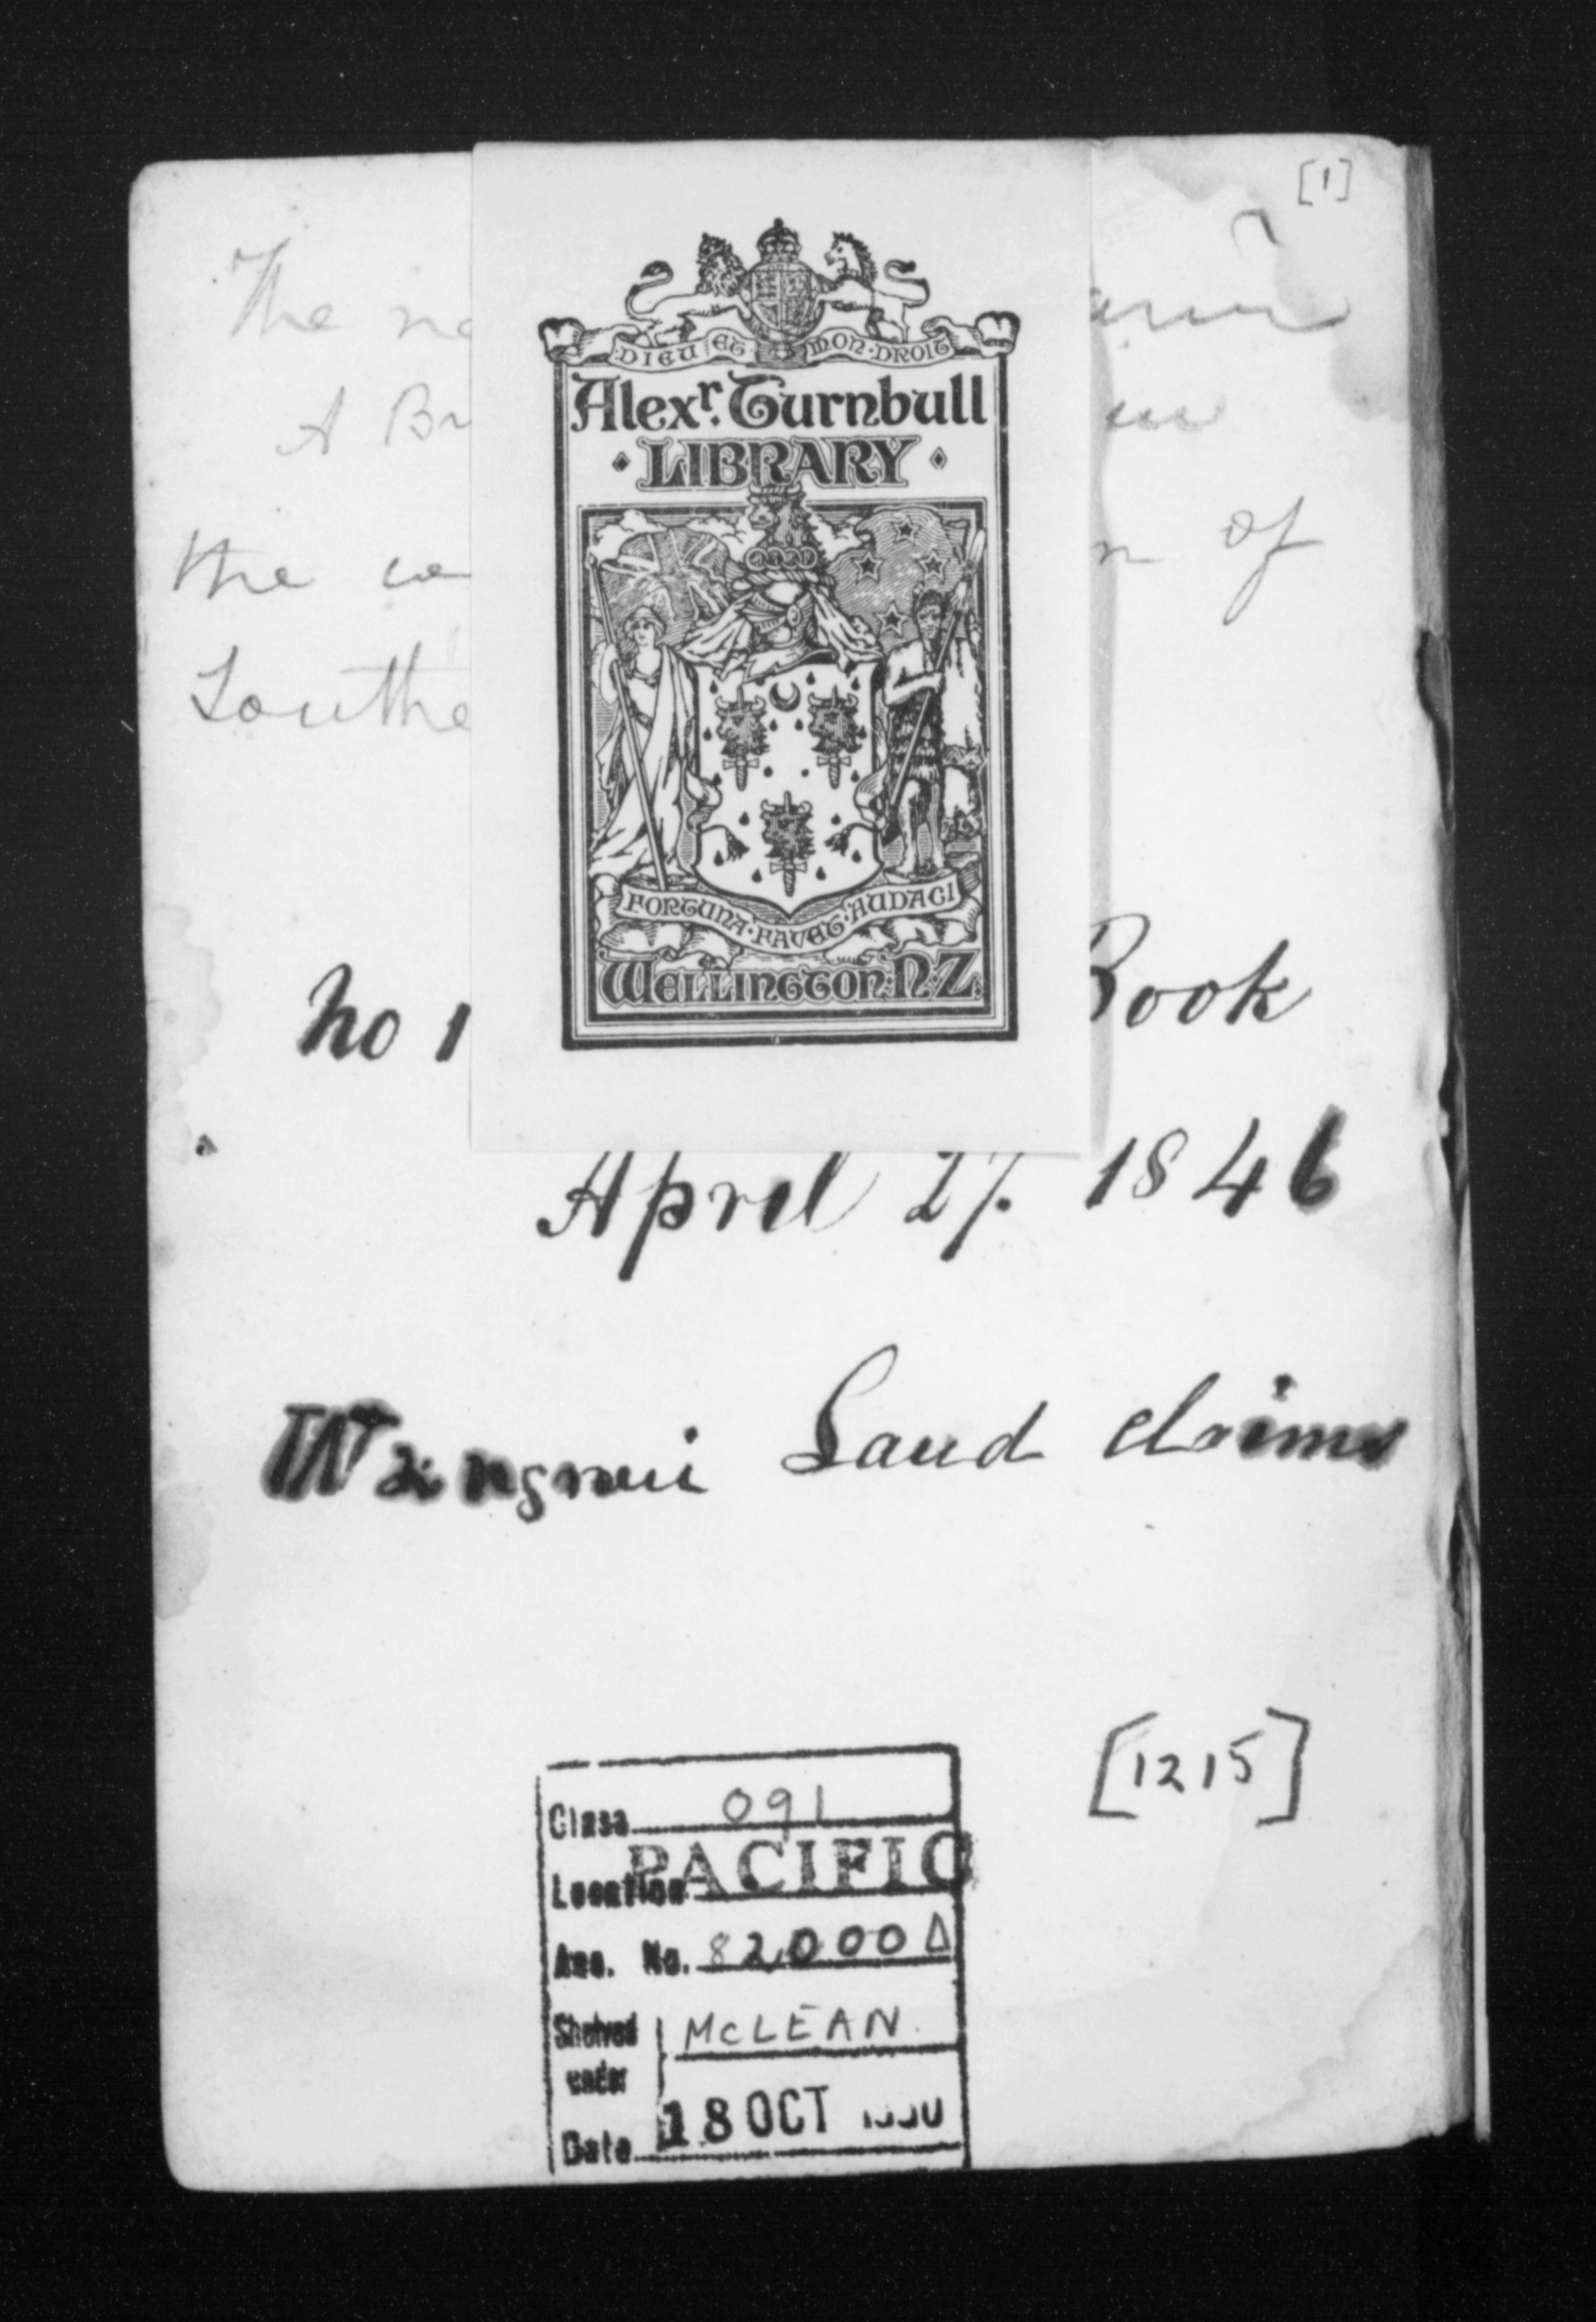 [1]
The
A
the of
DIEU ET MON DROIT
Alexr. Turnbull
LIBRARY
FORTUNA FAVET AUDACI
WELLINGTON N.Z.
No 1 Book
April 27. 1846
Land claims
[1215]
Class 091
Location PACIFIC
Acc. No. 82,000 Δ
Shelved
under McLEAN.
Date 18 OCT